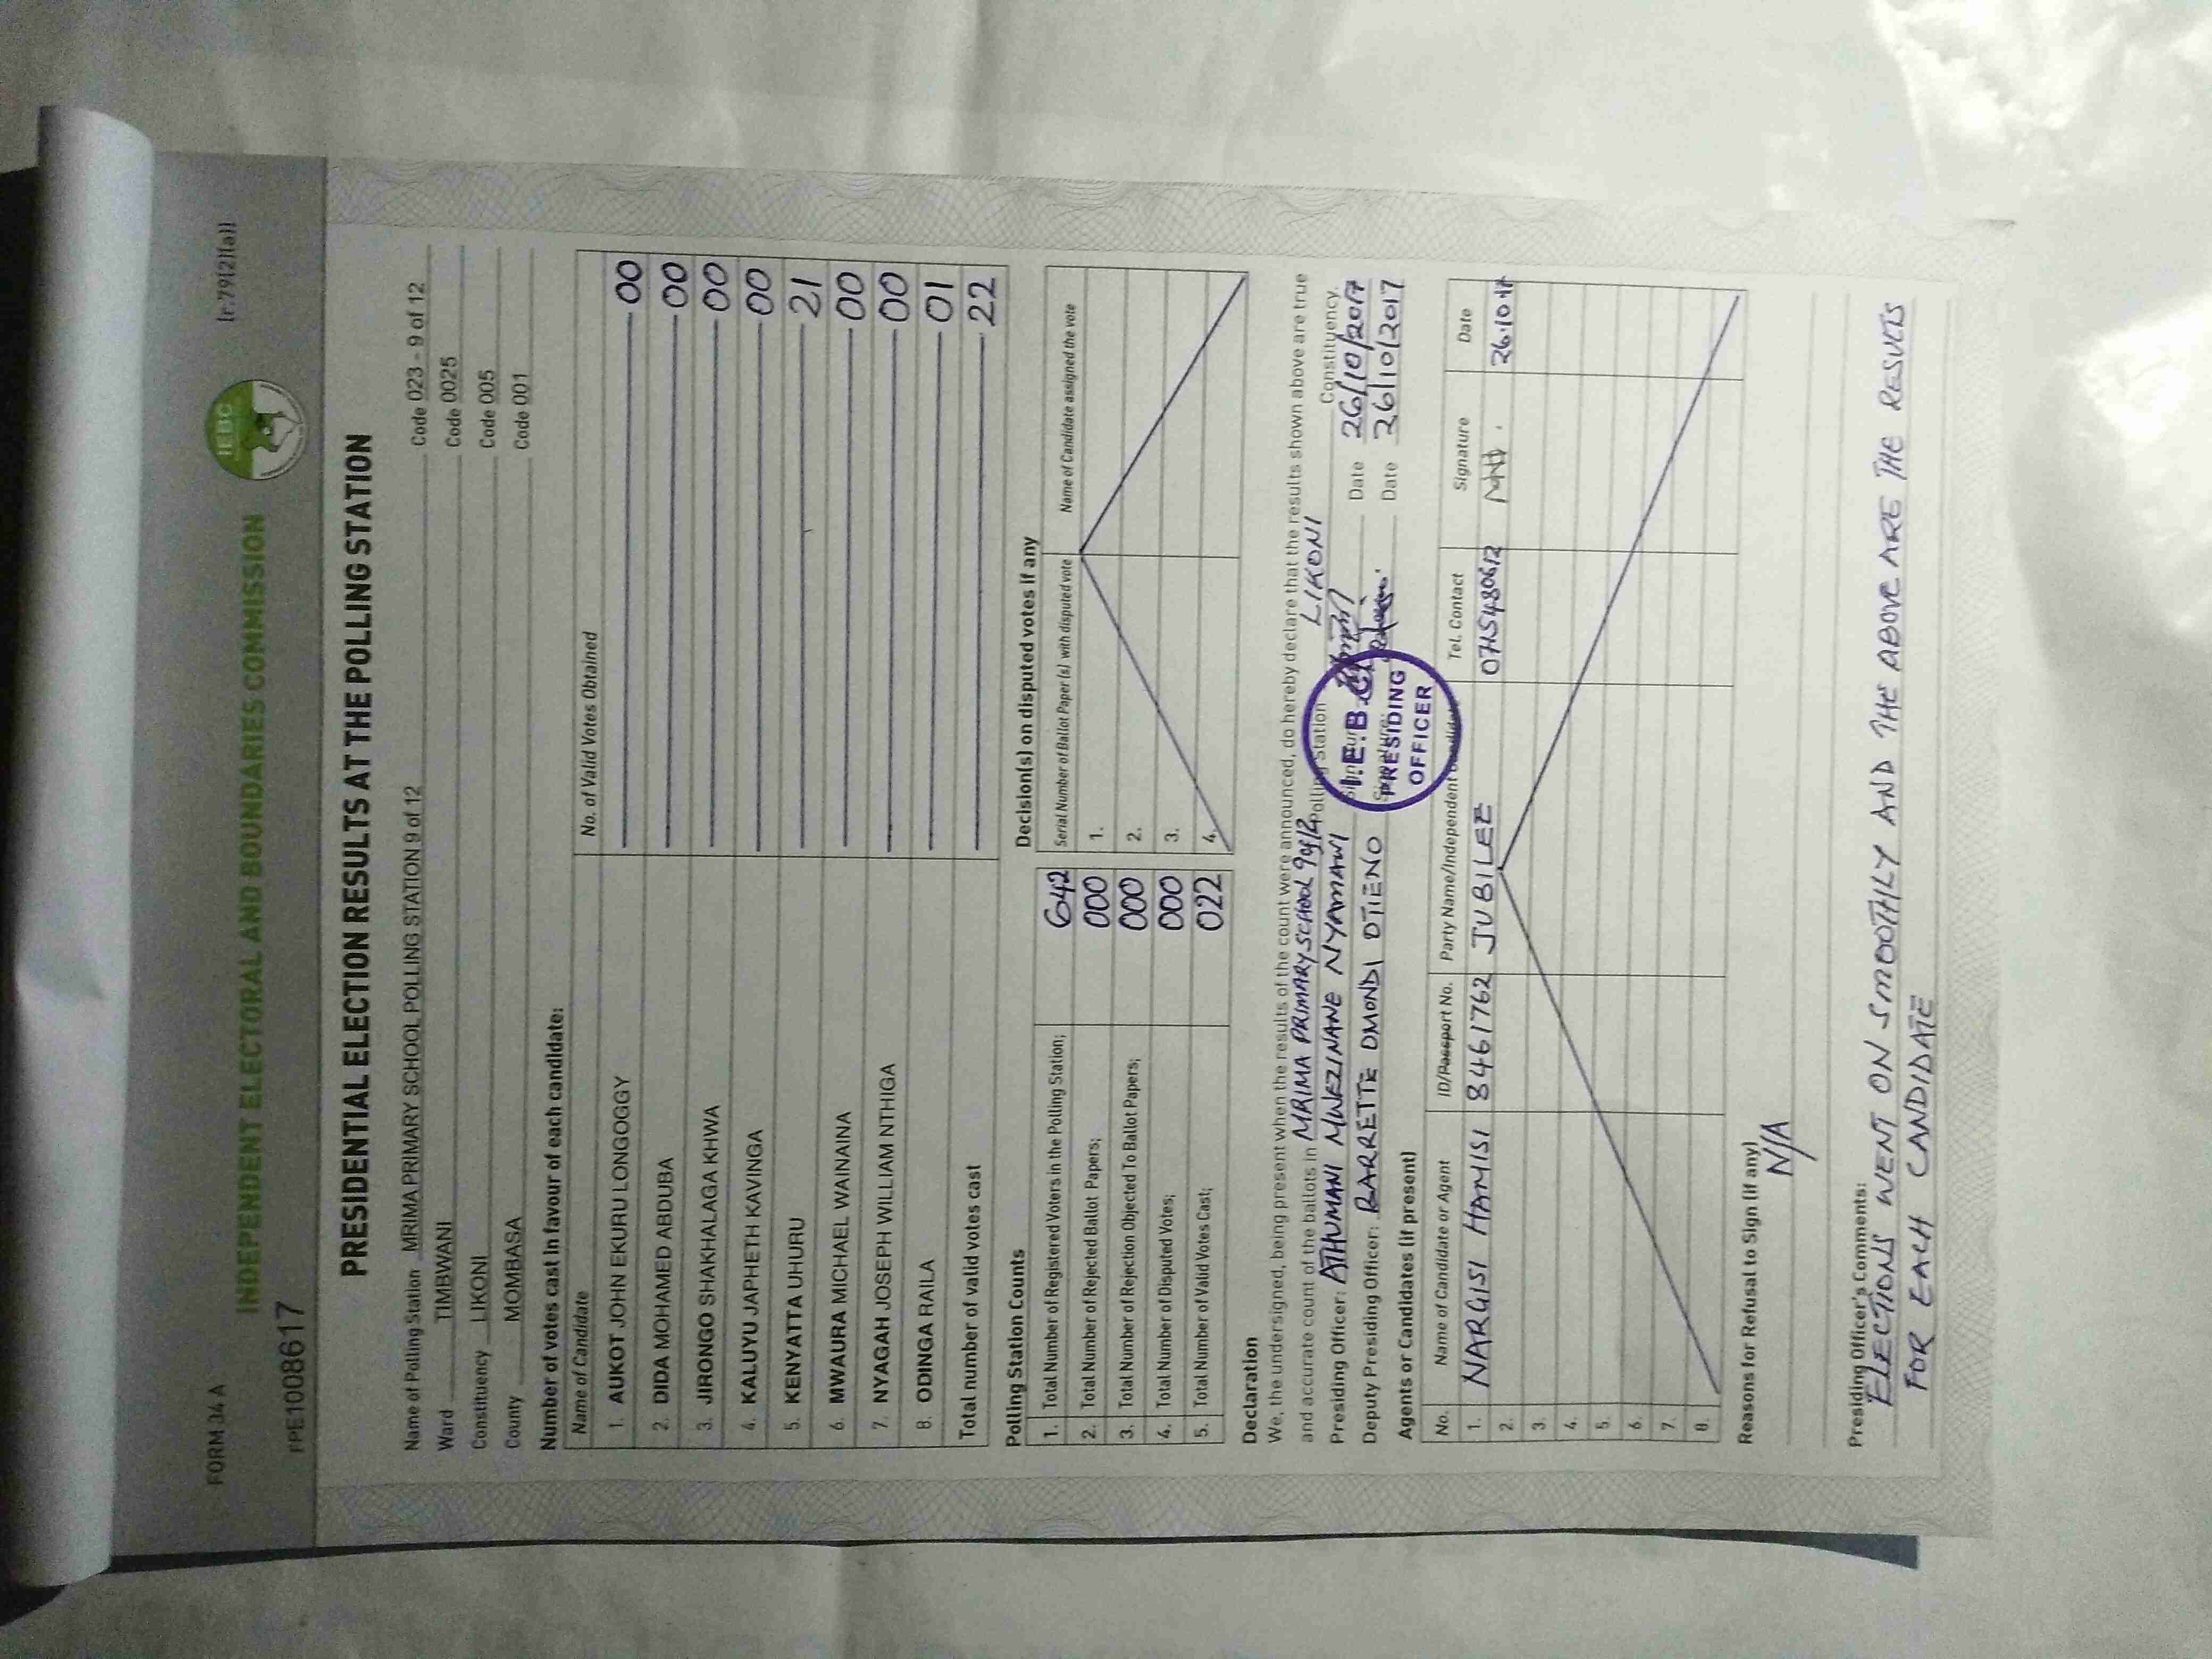 FORM 34 A
[r.79(2)(a)]
IEBC
INDEPENDENT ELECTORAL AND BOUNDARIES COMMISSION
PPE1008617
PRESIDENTIAL ELECTION RESULTS AT THE POLLING STATION
Name of Polling Station MRIMA PRIMARY SCHOOL POLLING STATION 9 of 12 Code 023 - 9 of 12
Ward TIMBWANI Code 0025
Constituency LIKONI Code 005
County MOMBASA Code 001
Number of votes cast in favour of each candidate:
Name of Candidate No. of Valid Votes Obtained
1. AUKOT JOHN EKURU LONGOGGY 00
2. DIDA MOHAMED ABDUBA 00
3. JIRONGO SHAKHALAGA KHWA 00
4. KALUYU JAPHETH KAVINGA 00
5. KENYATTA UHURU 21
6. MWAURA MICHAEL WAINAINA 00
7. NYAGAH JOSEPH WILLIAM NTHIGA 00
8. ODINGA RAILA 01
Total number of valid votes cast 22
Polling Station Counts
1. Total Number of Registered Voters in the Polling Station; 642
2. Total Number of Rejected Ballot Papers; 000
3. Total Number of Rejection Objected To Ballot Papers; 000
4. Total Number of Disputed Votes; 000
5. Total Number of Valid Votes Cast; 022
Decision(s) on disputed votes if any
Serial Number of Ballot Paper (s) with disputed vote Name of Candidate assigned the vote
1.
2.
3.
4.
Declaration
We, the undersigned, being present when the results of the count were announced, do hereby declare that the results shown above are true
and accurate count of the ballots in MRIMA PRIMARY SCHOOL 9 of 12 Polling Station LIKONI Constituency.
Presiding Officer: ATHUMANI MWEZINANE NYAMAWI Signature: Date 26/10/2017
Deputy Presiding Officer: BARRETTE OMONDI OTIENO Signature: Date 26/10/2017
I.E.B.C
PRESIDING
OFFICER
Agents or Candidates (if present)
No. Name of Candidate or Agent ID/Passport No. Party Name/Independent Candidate Tel. Contact Signature Date
1. NARGISI HAMISI 8461762 JUBILEE 0715480612 26.10.17
2.
3.
4.
5.
6.
7.
8.
Reasons for Refusal to Sign (if any)
N/A
Presiding Officer's Comments:
ELECTIONS WENT ON SMOOTHLY AND THE ABOVE ARE THE RESULTS
FOR EACH CANDIDATE